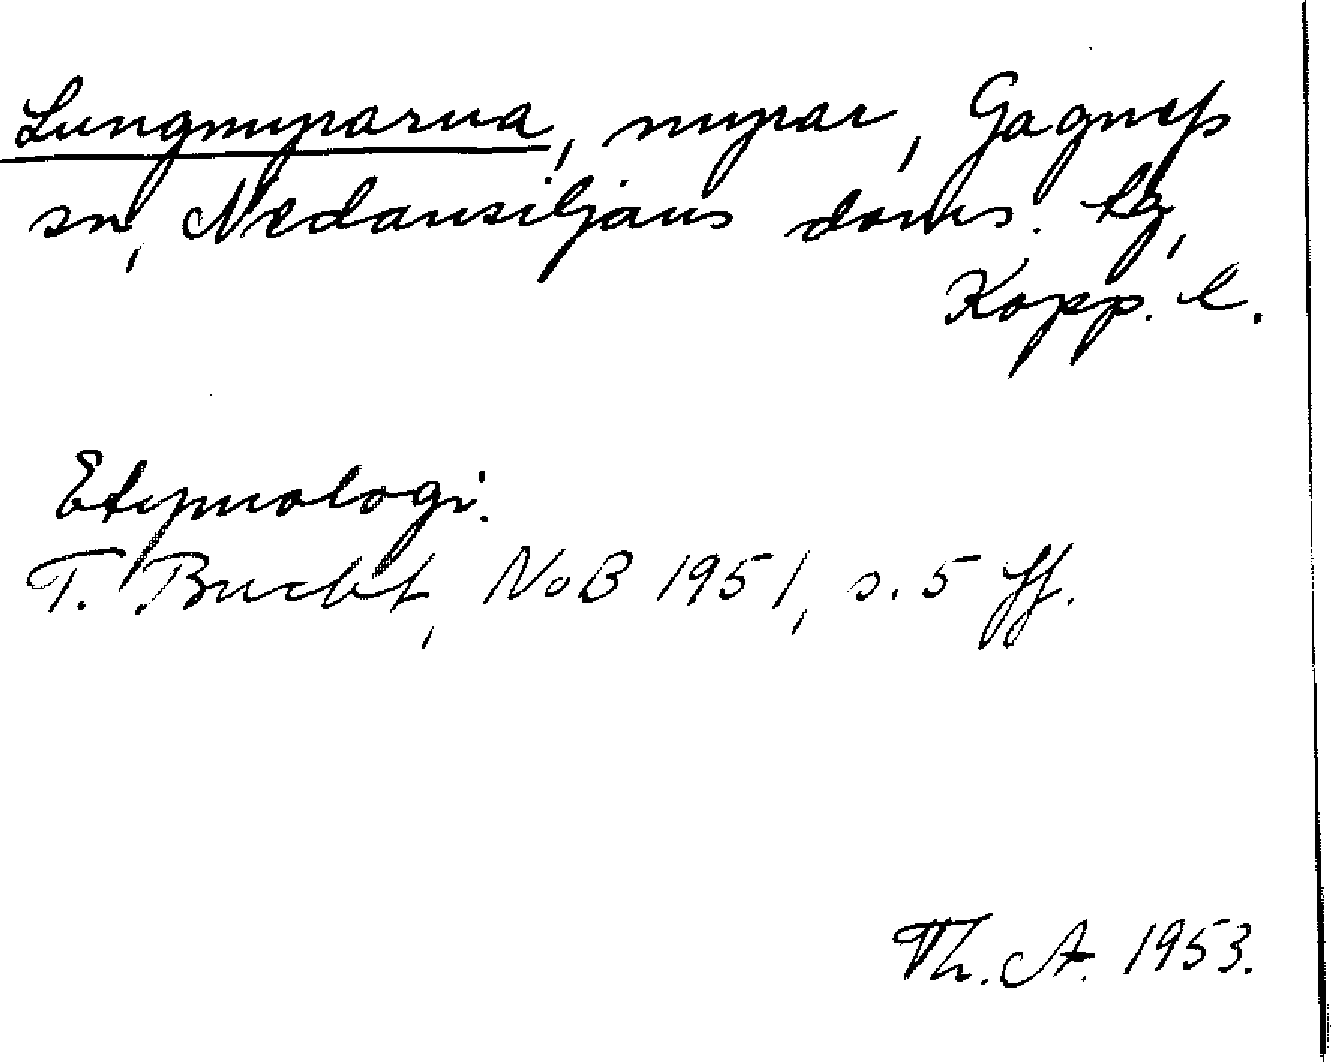 Lungmyrarna, myrar, Gagnefs
sn, Nedansiljans doms. hg,
Kopp. l.
Etymologi.
T. Bucht, NoB 1951, s. 5 ff.
Th. A. 1953.